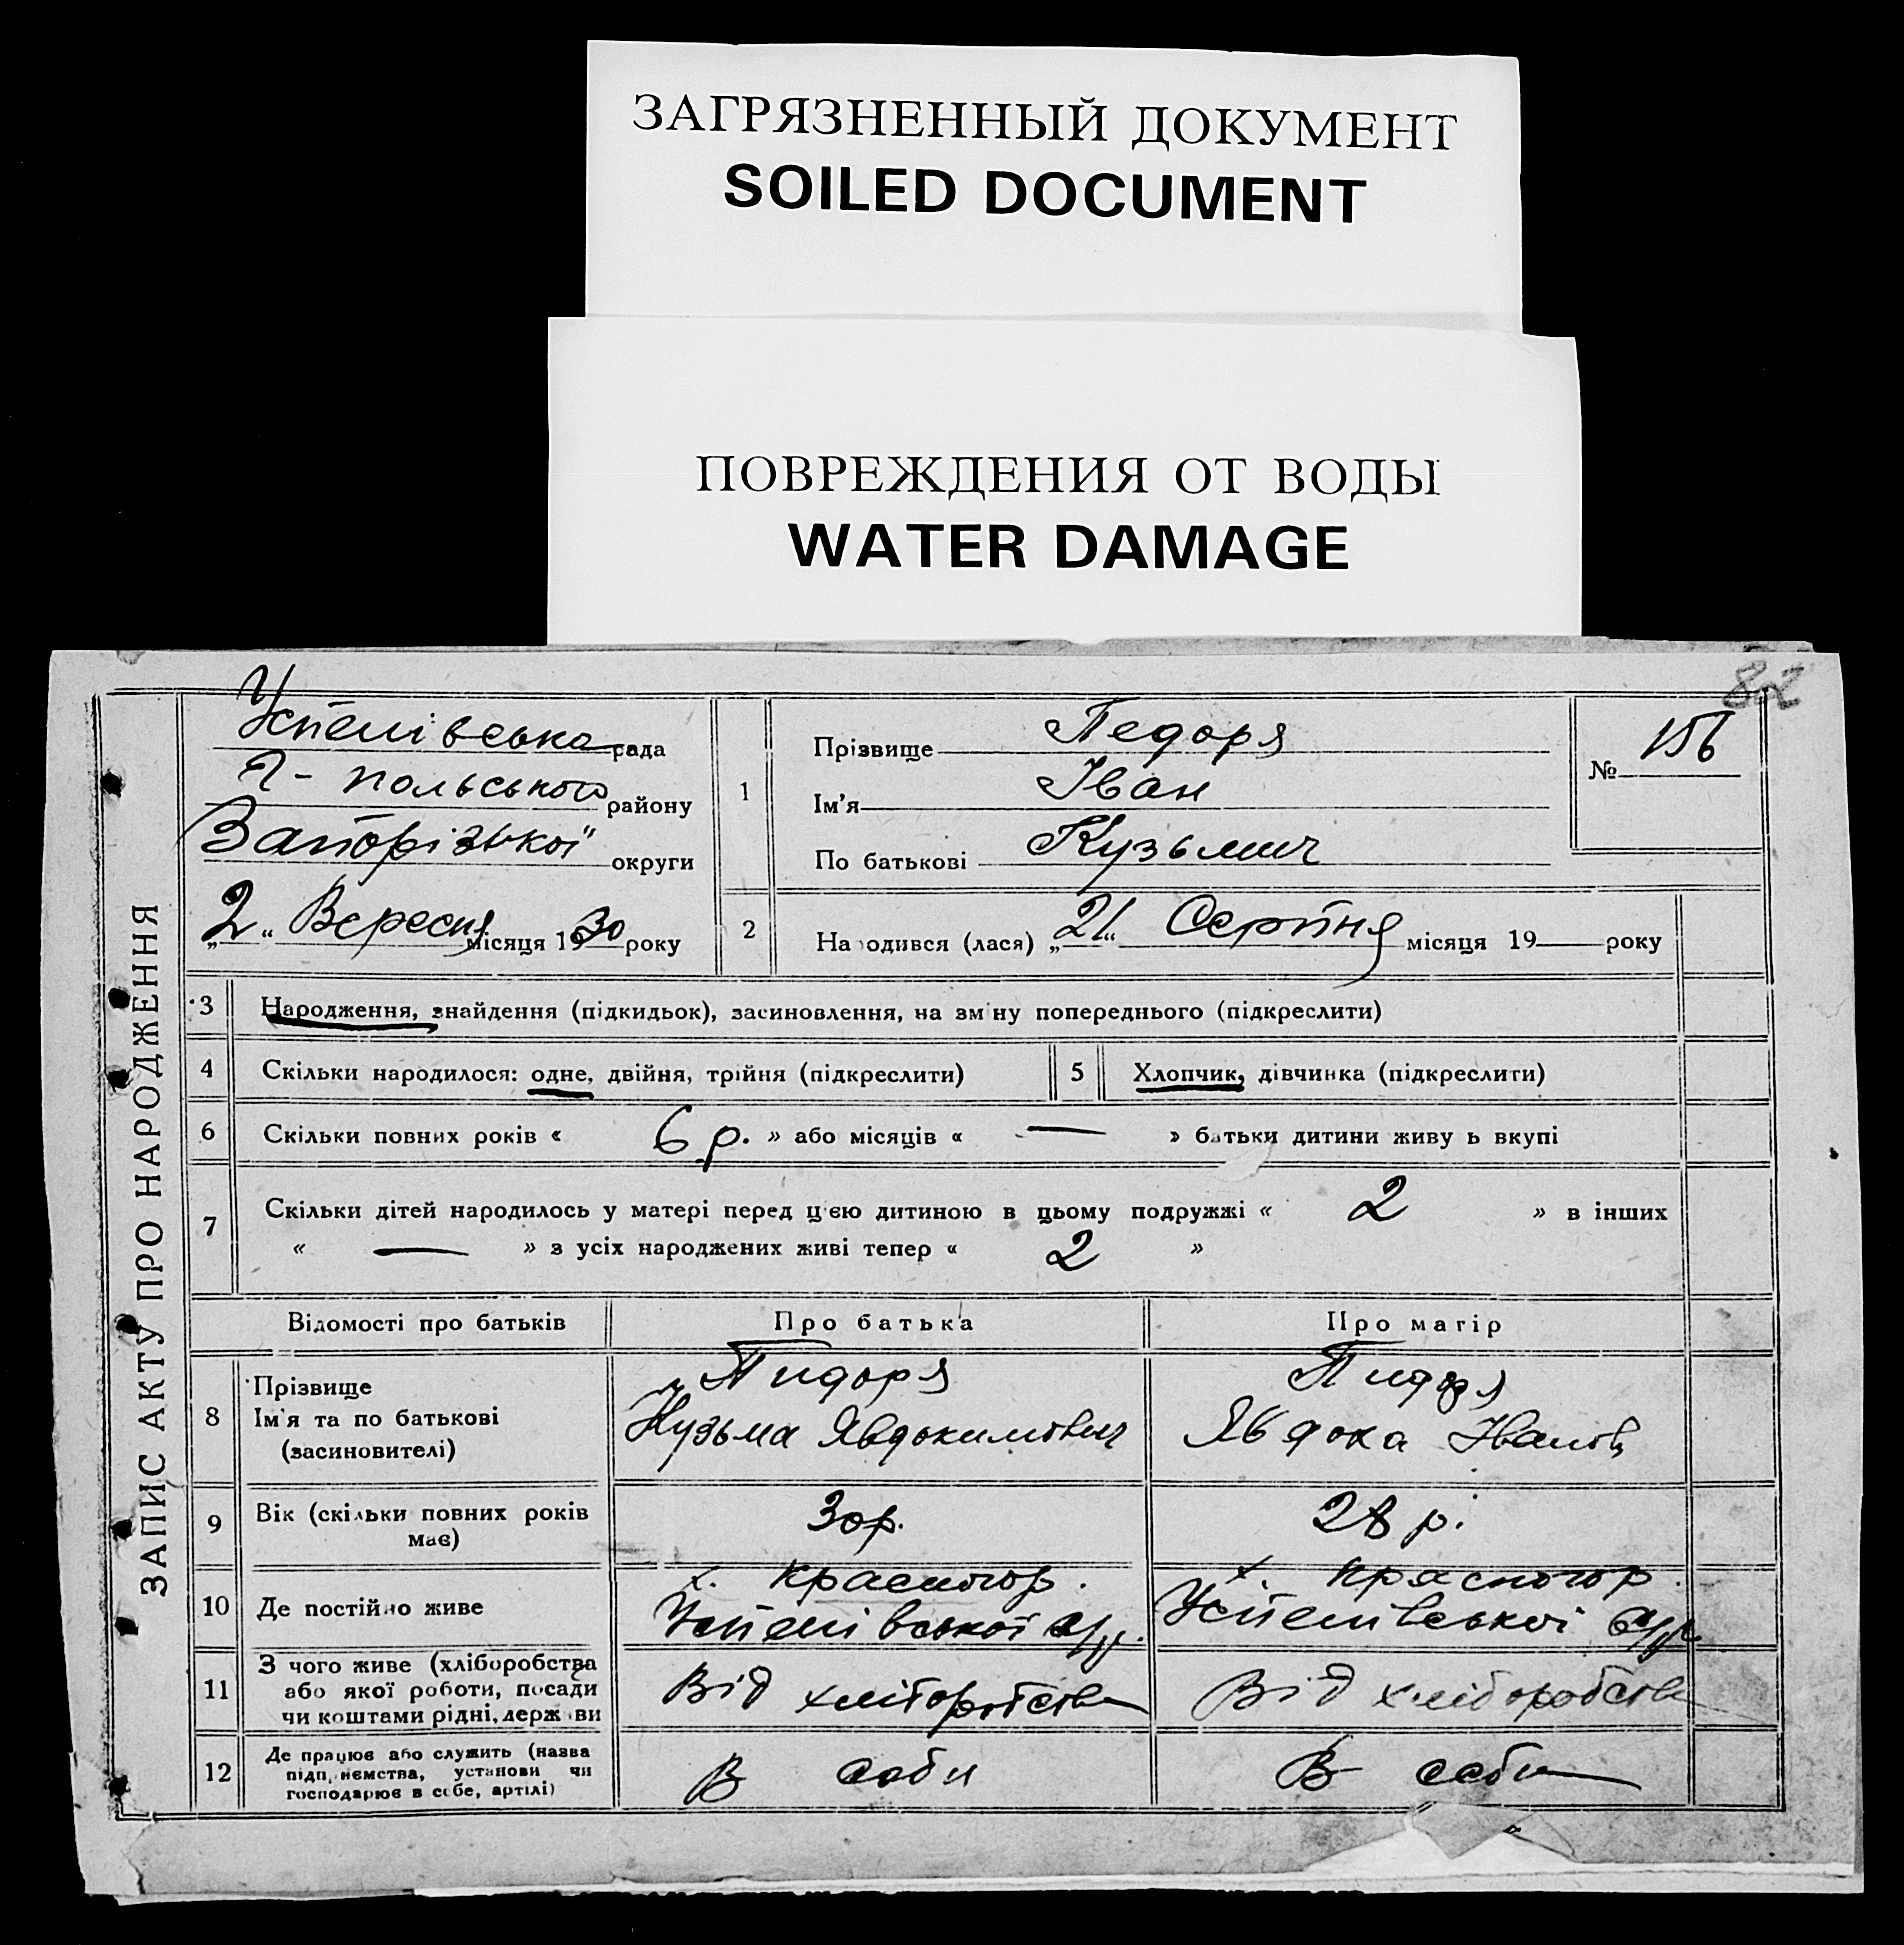 ЗАГРЯЗНЕННЫЙ ДОКУМЕНТ
SOILED DOCUMENT
ПОВРЕЖДЕНИЯ ОТ ВОДЫ
WATER DAMAGE
82
ЗАПИС АКТУ ПРО НАРОДЖЕННЯ
Успенівська рада
Г-польського району
Запорізької округи
„2“ Вересня місяця 1930 року
1
Прізвище Педоря
Ім'я Іван
По батькові Кузьмич
№ 156
2 Народився (лася) „21“ Серпня місяця 19— року
3 Народження, знайдення (підкидьок), засиновлення, на зміну попереднього (підкреслити)
4 Скільки народилося: одне, двійня, трійня (підкреслити) 5 Хлопчик, дівчинка (підкреслити)
6 Скільки повних років « 6 р. » або місяців « — » батьки дитини живу ь вкупі
7 Скільки дітей народилось у матері перед цією дитиною в цьому подружжі « 2 » в інших
« — » з усіх народжених живі тепер « 2 »
Відомості про батьків Про батька Про матір
8 Прізвище Пидоря Пидоря
Ім'я та по батькові Кузьма Явдокимович Явдока Іванов
(засиновителі)
9 Вік (скільки повних років має) 30р. 28 р.
10 Де постійно живе х. Красногор. х. Красногор.
Успенівської с/р. Успенівської с/р
11 З чого живе (хліборобства
або якої роботи, посади Від хліборобства Від хліборобства
чи коштами рідні, держави
12 Де працює або служить (назва
підприємства, установи чи В соби В соби
господарює в себе, артілі)